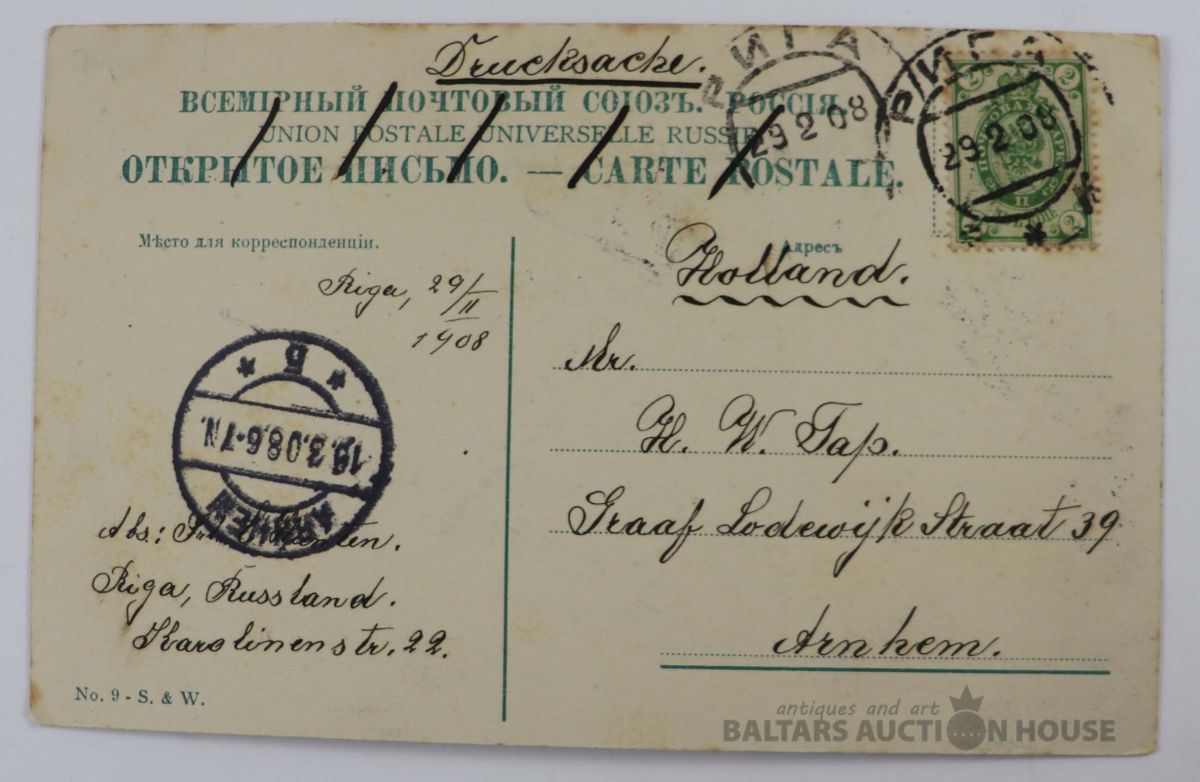 Drucksache.
ВСЕМІРНЫЙ ПОЧТОВЫЙ СОЮЗЪ. РОССІЯ
UNION POSTALE UNIVERSELLE RUSSIE
ОТКРЫТОЕ ПИСЬМО. — CARTE POSTALE.
РИГА
29 2 08
РИГА
29 2 08
Мѣсто для корреспонденціи.
Адресъ
Riga, 29/II
1908
Holland.
Mr.
H. W. Tap.
Graaf Lodewijk Straat 39
Arnhem.
Б
19.3.08.6-7N.
ARNHEM
Abs:
Riga, Russland.
Karolinenstr. 22.
No. 9 - S. & W.
antiques and art
BALTARS AUCTION HOUSE